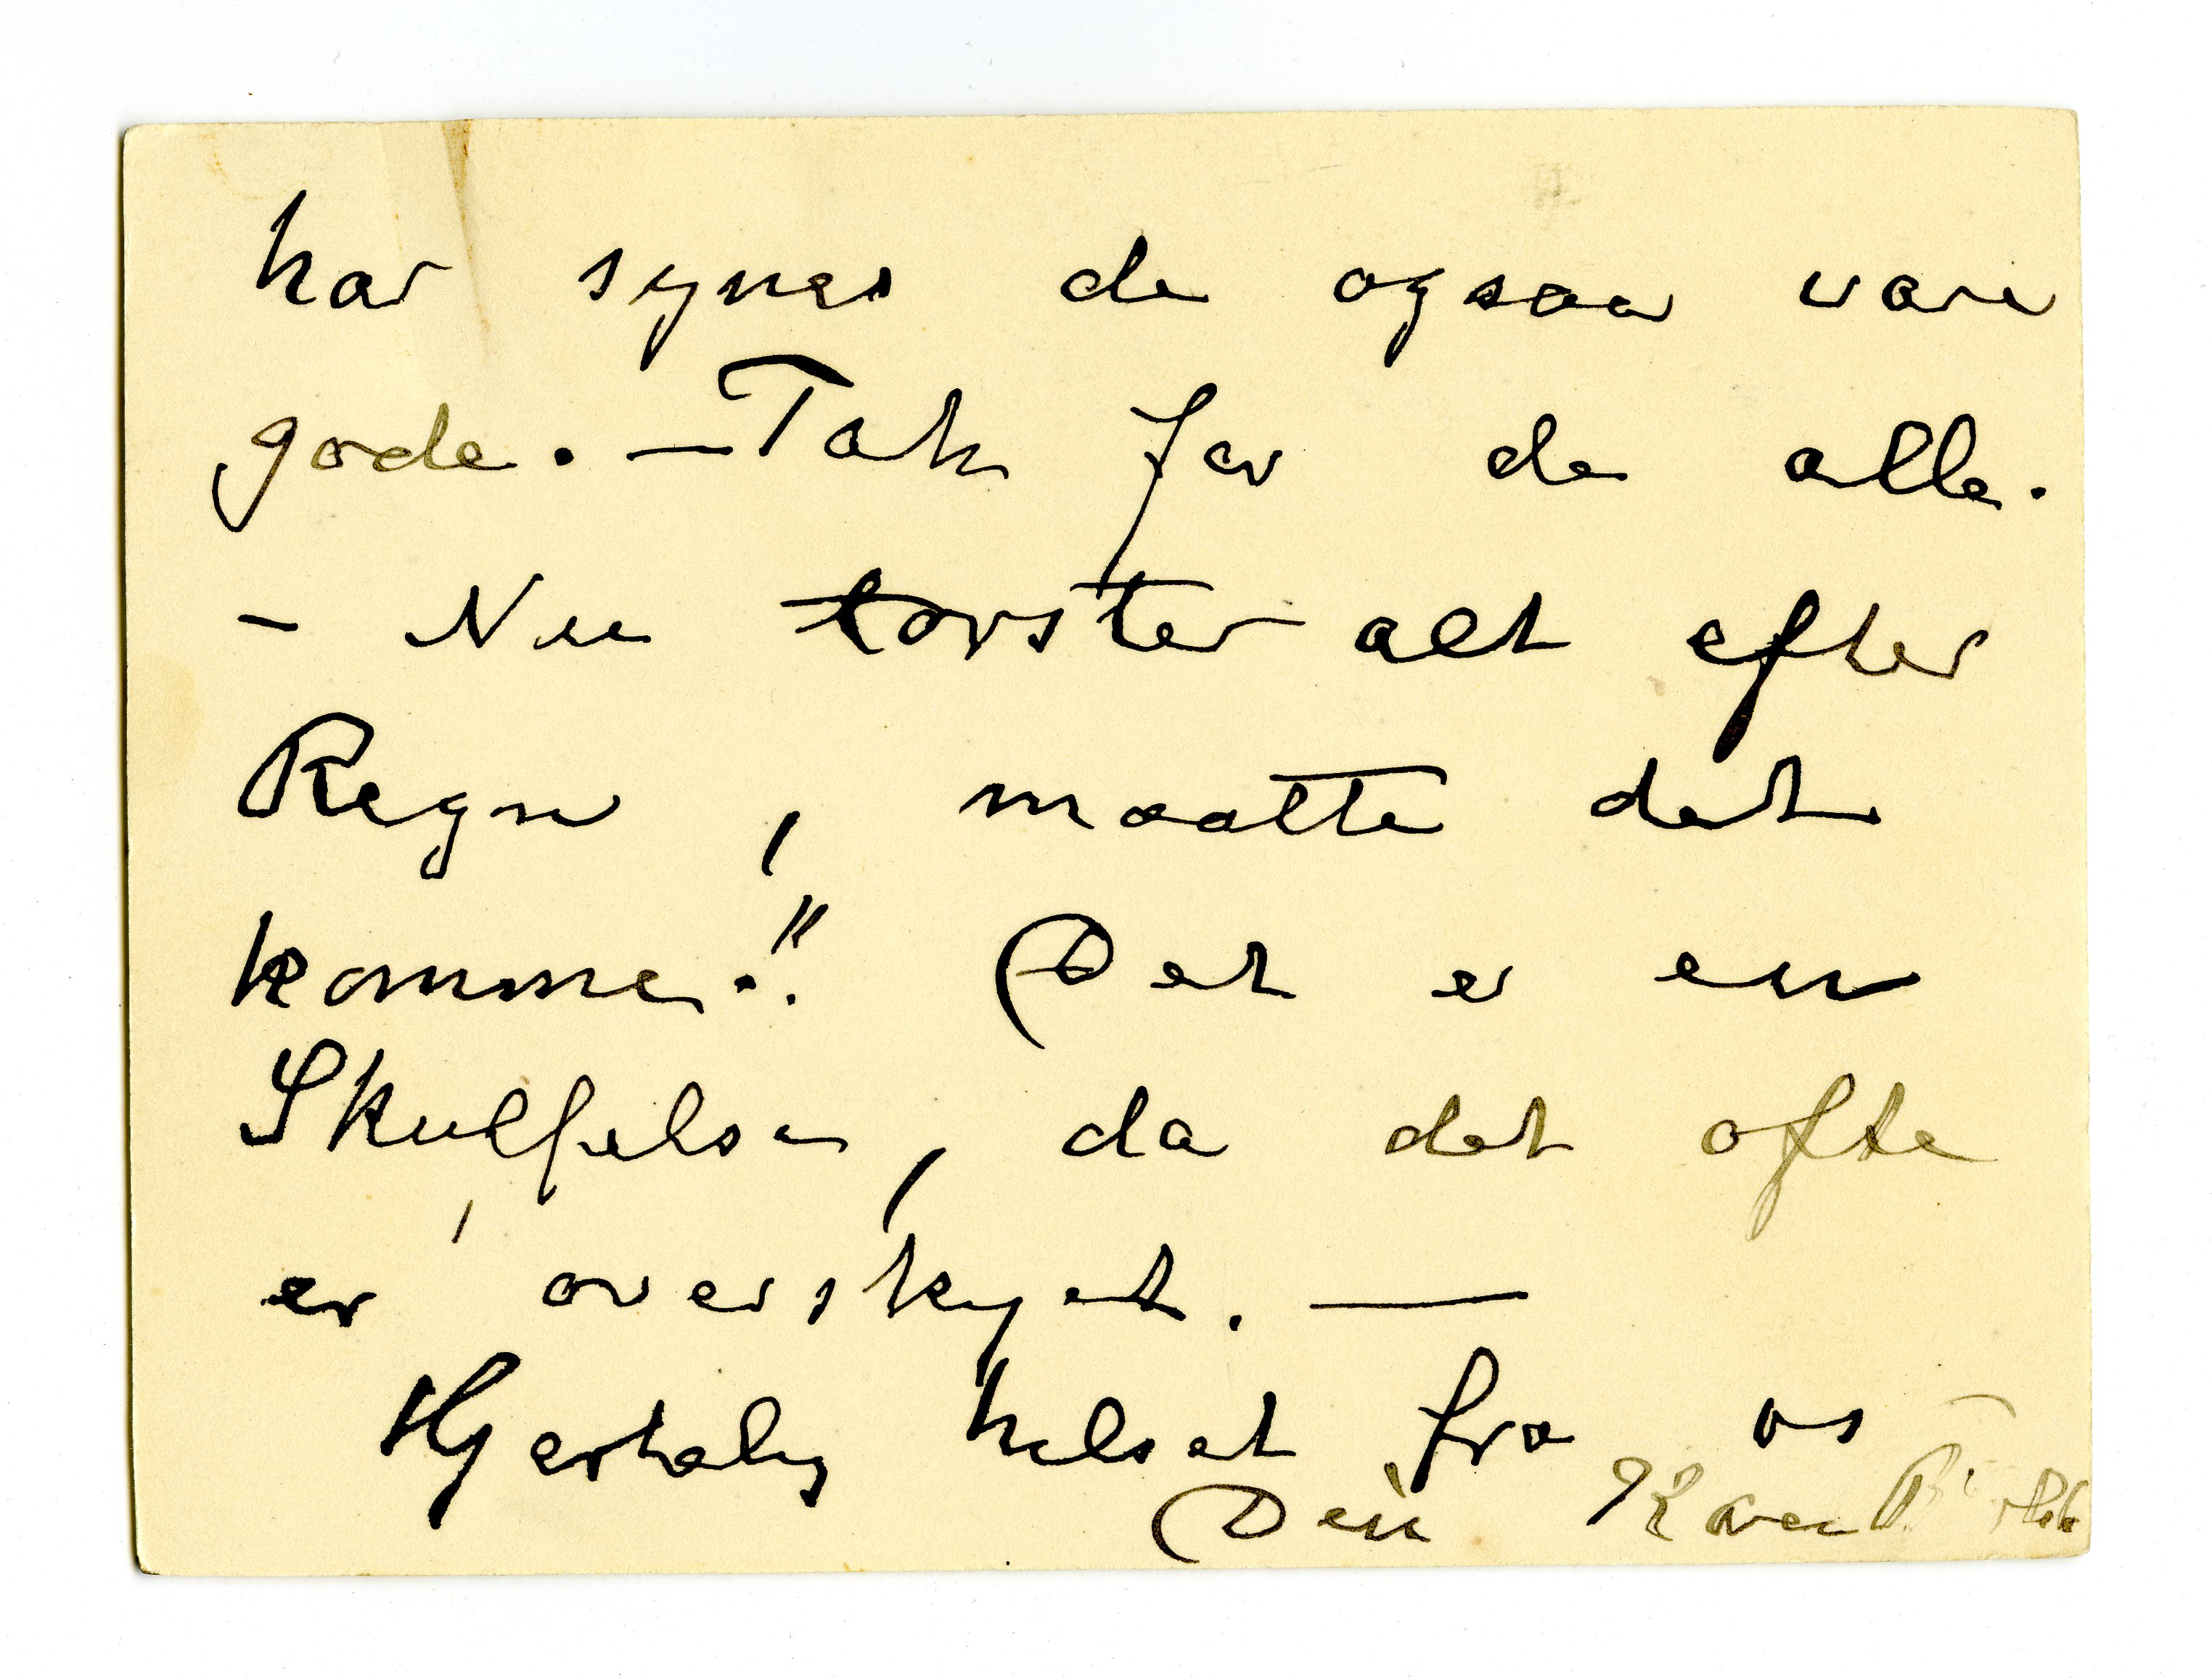 har synes de ogsaa vare
gode. — Tak for de alle.
- Nu torster alt efter
Regn, maatte det
komme.!! Det er en
Skuffelse, da det ofte
er overskyet. —
Hjertelig hilset fra os
Din Karen